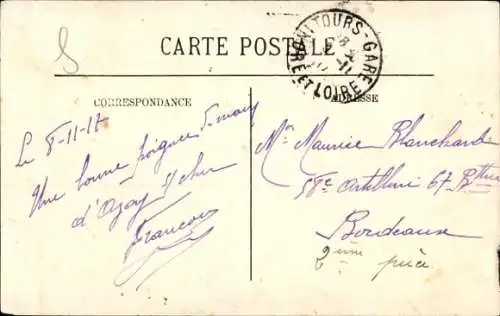 CARTE POSTALE
TOURS-GARE
INDRE ET LOIRE
CORRESPONDANCE
ADRESSE
Le 8-11-11
Une bonne poignee de main
d'Azay s/cher
Francois
Mr Maurice Blanchard
58e Artillerie 67 Btterie
Bordeaux
2eme pièce